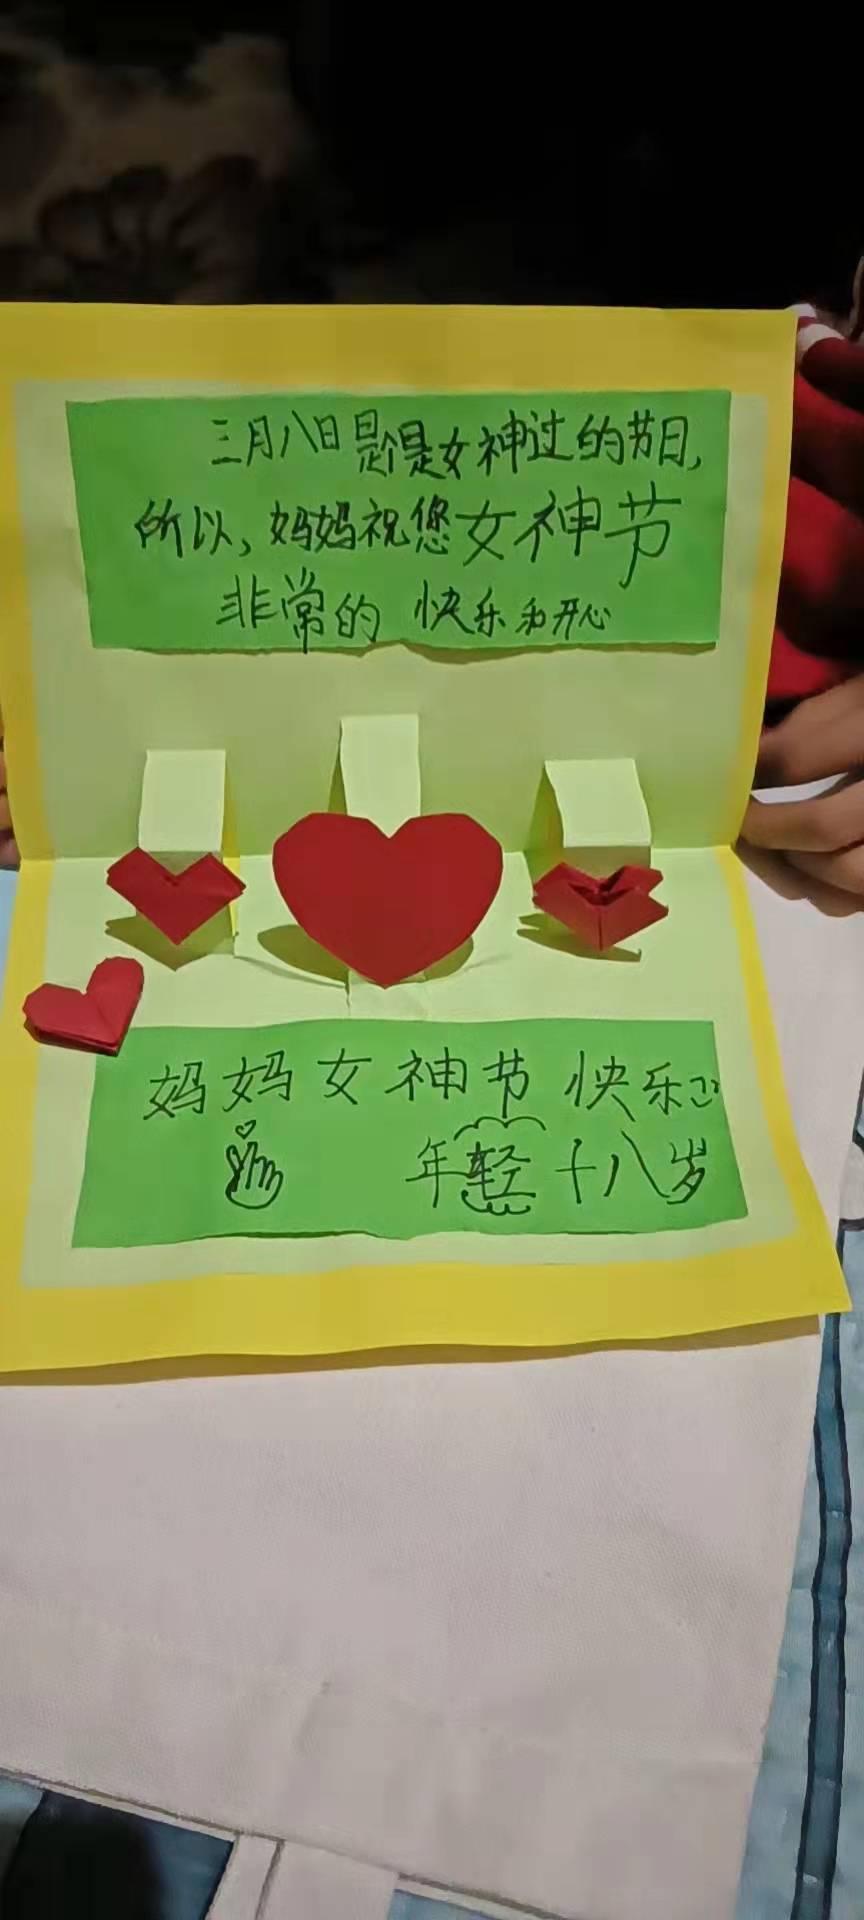 三月八日是个是女神过的节日，
所以，妈妈祝您女神节
非常的 快乐和开心
妈妈女神节快乐
年轻十八岁